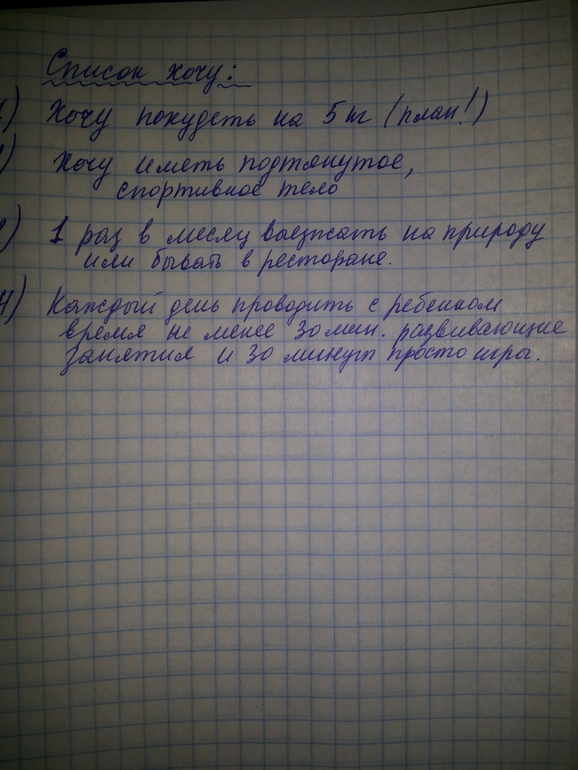 Список хочу:
1) Хочу похудеть на 5 кг (план!)
) Хочу иметь подтянутое,
спортивное тело
) 1 раз в месяц выезжать на природу
или бывать в ресторане.
4) Каждый день проводить с ребенком
время не менее 30 мин. развивающие
занятия и 30 минут просто игры.